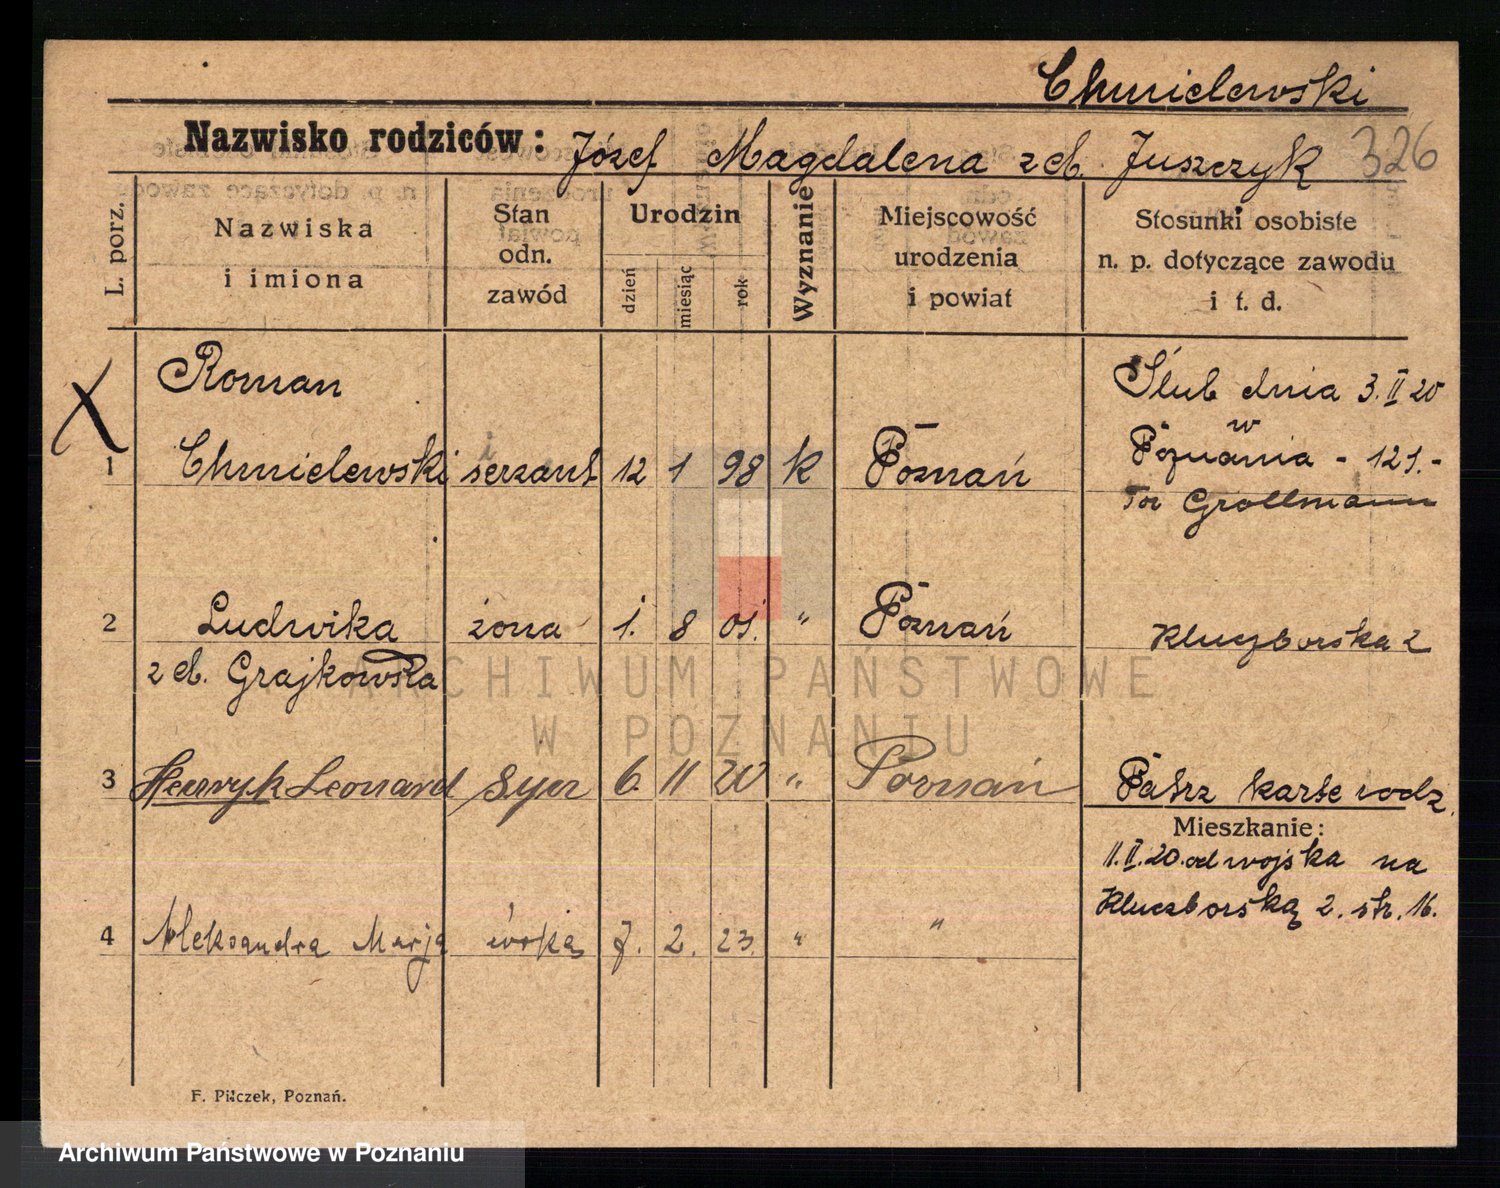 Chmielewski
Nazwisko rodziców: Józef Magdalena z d. Juszczyk 326
L. porz.
Nazwiska
i imiona
Stan
odn.
zawód
Urodzin
dzień
miesiąc
rok
Wyznanie
Miejscowość
urodzenia
i powiat
Stosunki osobiste
n. p. dotyczące zawodu
i t. d.
Roman
Ślub dnia 3. II 20
w
1 Chmielewski serzant 12 1 98 k Poznań
Poznania - 121.-
For Grollmann
2 Ludwika żona 1. 8 01. " Poznań
Kluczborska 2
z d. Grajkowska
3 Henryk Leonard Syn 6. 11 20 " Poznań
Patrz karte rodz.
Mieszkanie:
11. II. 20. od wojska na
Kluczborską 2. str. 16.
4 Aleksandra Marja 7. 2. 23. " "
F. Pilczek, Poznań.
ARCHIWUM PAŃSTWOWE
W POZNANIU
Archiwum Państwowe w Poznaniu